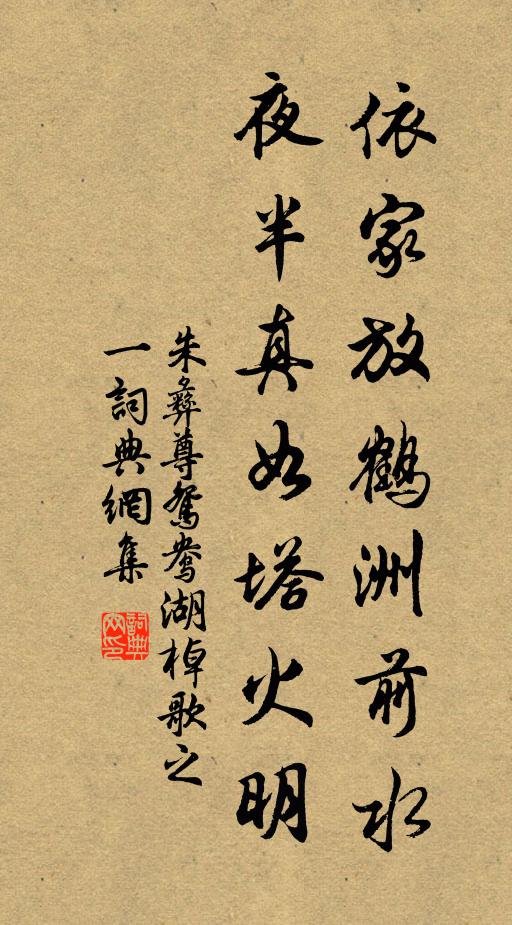 依家放鶴洲前水
夜半真如塔火明
朱彝尊鴛鴦湖棹歌之
一詞典網集
詞典
网印